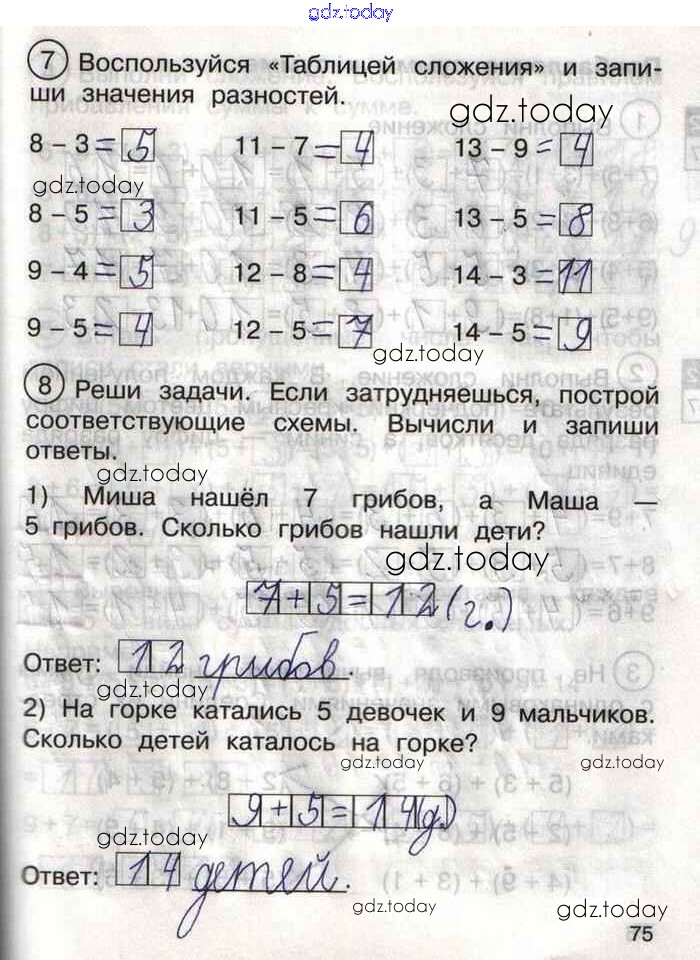 gdz.today
7 Воспользуйся «Таблицей сложения» и запи-
ши значения разностей.
gdz.today
8 – 3 = 5 11 – 7 = 4 13 – 9 = 4
gdz.today
8 – 5 = 3 11 – 5 = 6 13 – 5 = 8
9 – 4 = 5 12 – 8 = 4 14 – 3 = 11
9 – 5 = 4 12 – 5 = 7 14 – 5 = 9
gdz.today
8 Реши задачи. Если затрудняешься, построй
соответствующие схемы. Вычисли и запиши
ответы.
gdz.today
1) Миша нашёл 7 грибов, а Маша —
5 грибов. Сколько грибов нашли дети?
gdz.today
7+5=12(г.)
Ответ: 12 грибов.
gdz.today
2) На горке катались 5 девочек и 9 мальчиков.
Сколько детей каталось на горке?
gdz.today gdz.today
9+5=14(д.)
gdz.today
Ответ: 14 детей.
gdz.today gdz.today
75